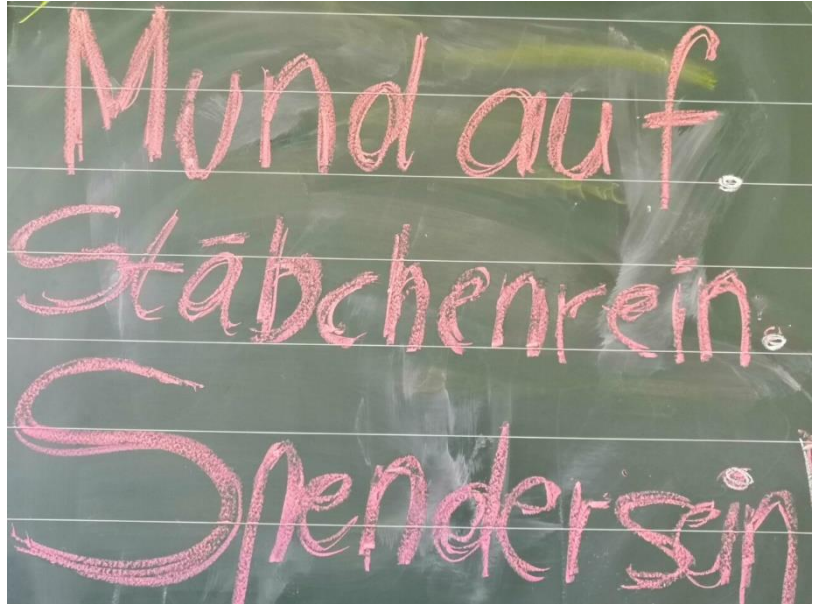 Mund auf.
Stäbchenrein.
Spendersein